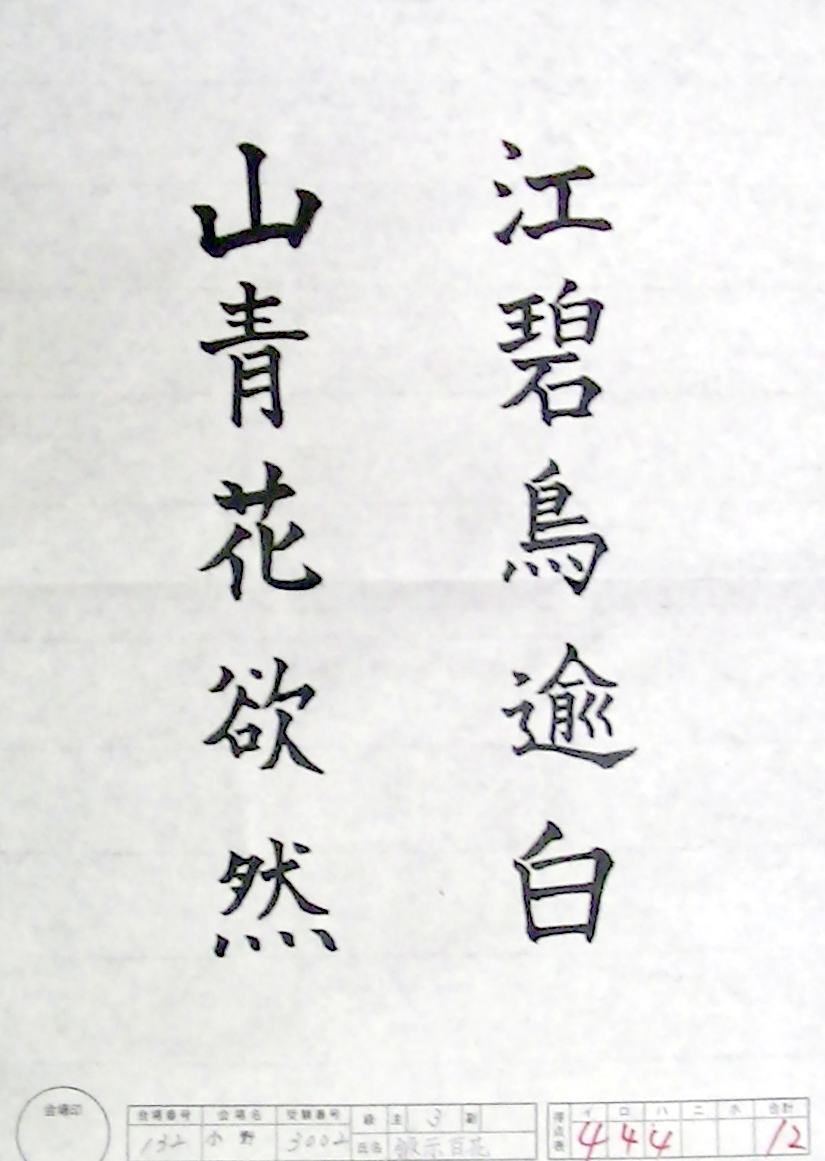 江碧鳥逾白
山青花欲然
会場印
会場番号 会場名 受験番号 級 主 3 副
132 小野 3002 氏名
得点表 イ ロ ハ ニ ホ 合計
4 4 4 12